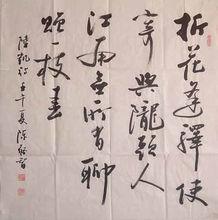 折花逢驛使
寄與隴頭人
江南無所有聊
贈一枝春
陸凱詩 壬午夏 陳